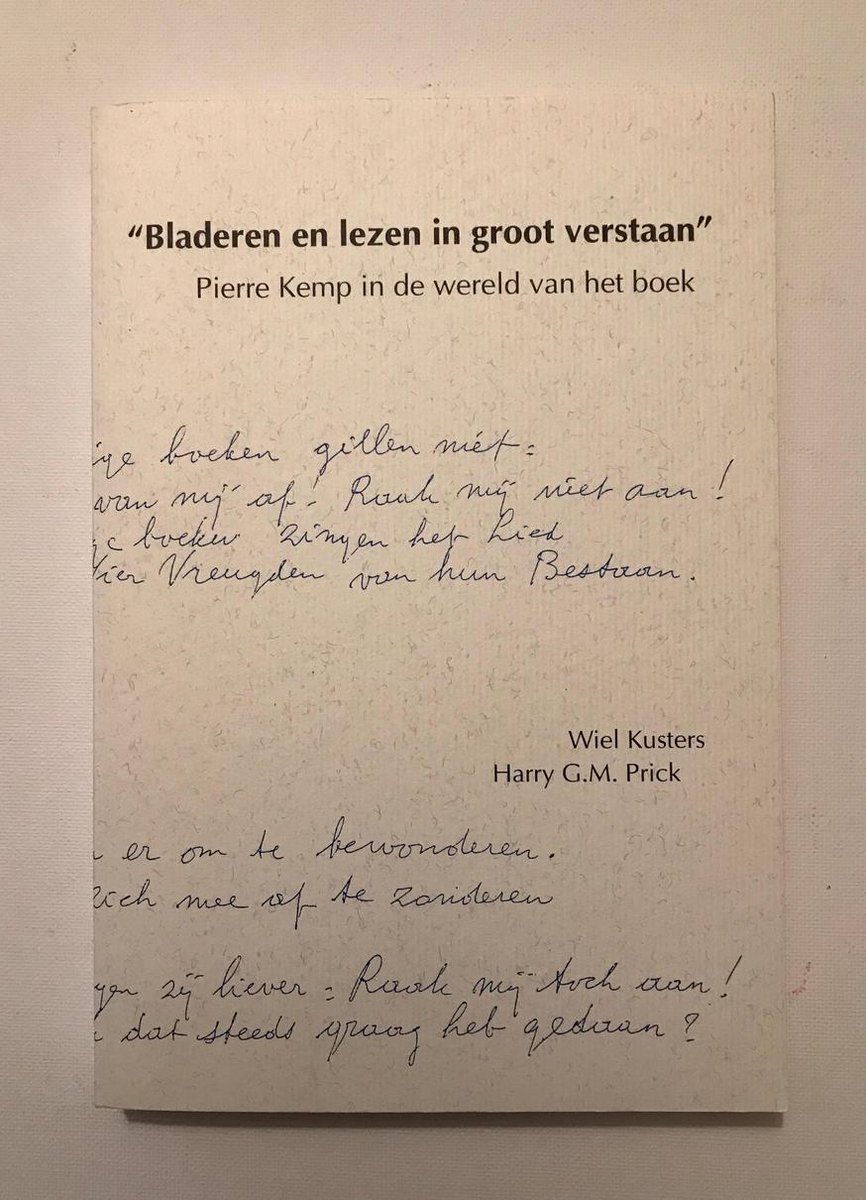 “Bladeren en lezen in groot verstaan”
Pierre Kemp in de wereld van het boek
ige boeken gillen niet:
van mij af! Raak mij niet aan!
ge boeken zingen het Lied
Vier Vreugden van hun Bestaan.
Wiel Kusters
Harry G.M. Prick
er om te bewonderen.
zich mee af te zonderen
gen zij liever: Raak mij toch aan!
dat steeds graag heb gedaan?